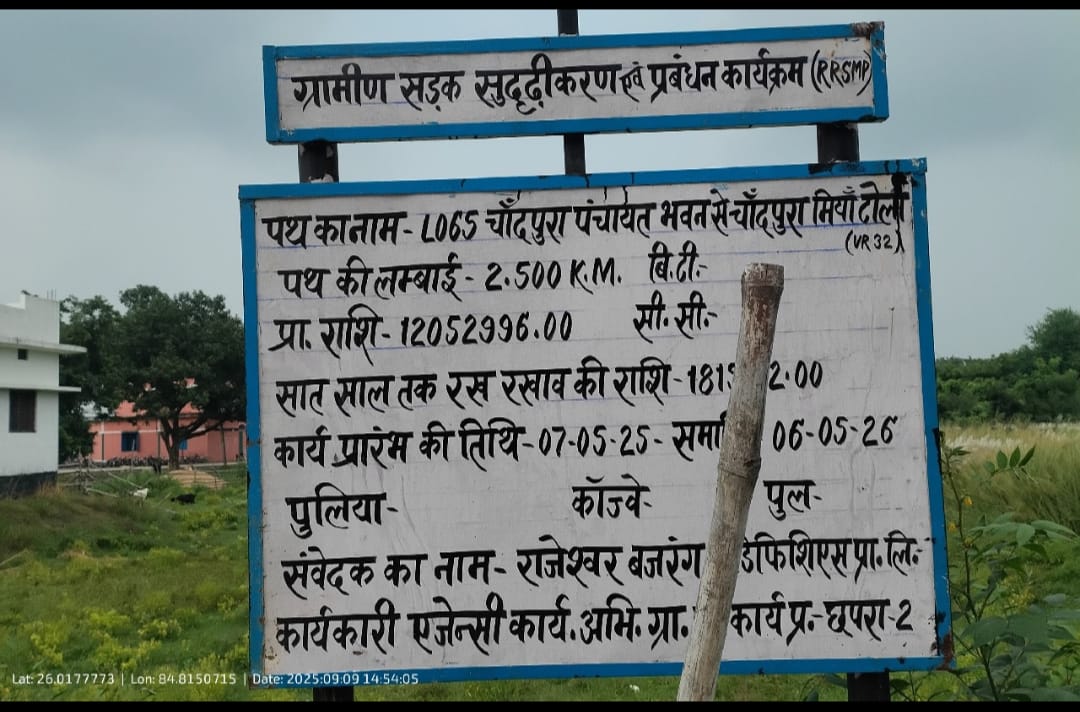 ग्रामीण सड़क सुदृढ़ीकरण एवं प्रबंधन कार्यक्रम (RRSMP)
पथ का नाम- L065 चाँदपुरा पंचायत भवन से चाँदपुरा मियाँ टोली
(VR 32)
पथ की लम्बाई - 2.500 K.M. बि.टी.-
प्रा. राशि - 12052996.00 सी. सी.-
सात साल तक रख रखाव की राशि - 181 2.00
कार्य प्रारंभ की तिथि - 07-05-25 - 06-05-26
पुलिया- कॉजवे- पुल-
संवेदक का नाम- राजेश्वर बजरंग डेफिशिएस प्रा. लि.-
कार्यकारी एजेन्सी कार्य. अभि. ग्रा. कार्य प्र.- छपरा-2
Lat: 26.0177773 | Lon: 84.8150715 | Date: 2025:09:09 14:54:05